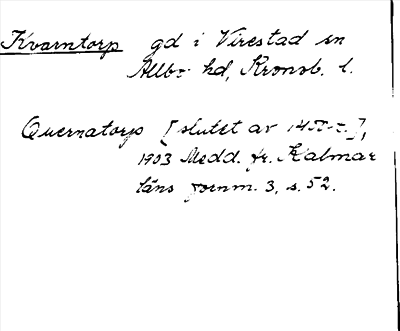 Kvarntorp gd i Virestad sn
Allbo hd, Kronob. l.
Quernatorp [slutet av 14
1903 Medd. fr. Kalmar
läns fornm. 3, s. 52.